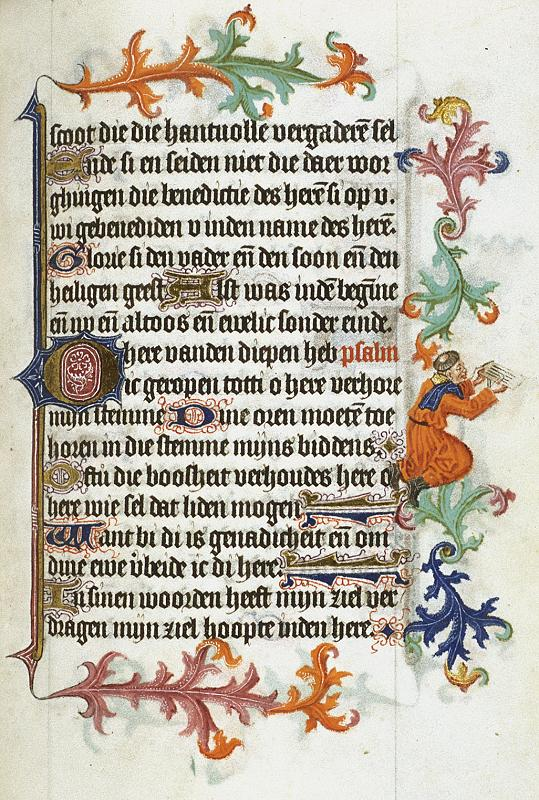 scoot die die hantuolle vergaderē sel
Ende si en seiden niet die daer wor
ghingen die benedictie des herē si op v.
wi gebenediden v inden name des herē.
Glorie si den vader eñ den soon eñ den
heiligen geest Alst was indē begīne
eñ nv eñ altoos eñ ewelic sonder einde.
O here vanden diepen heb psalm
ic geropen totti o here verhore
mijn stemme Dine oren moetē toe
horen in die stemme mijns biddens
Ostu die boosheit verhoudes here o
here wie sel dat liden mogen
Want bi di is genadicheit eñ om
dine ewe v̄beide ic di here
In sinen woorden heeft mijn ziel ver
dragen mijn ziel hoopte inden here